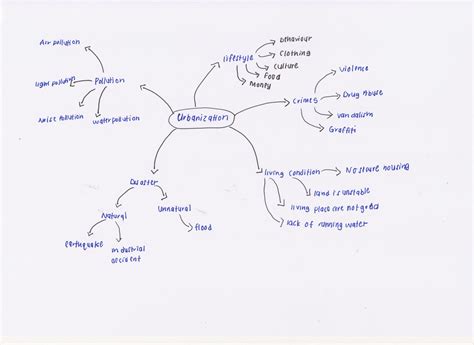 Air pollution
light pollution
Pollution
Noise Pollution
water pollution
Urbanization
lifestyle
behaviour
Clothing
Culture
Food
Money
Crimes
Violence
Drug Abuse
Vandalism
Graffiti
living Condition
No secure housing
land is unstable
living place are not good
lack of running water
Disaster
Natural
Unnatural
flood
earthquake
industrial
accident